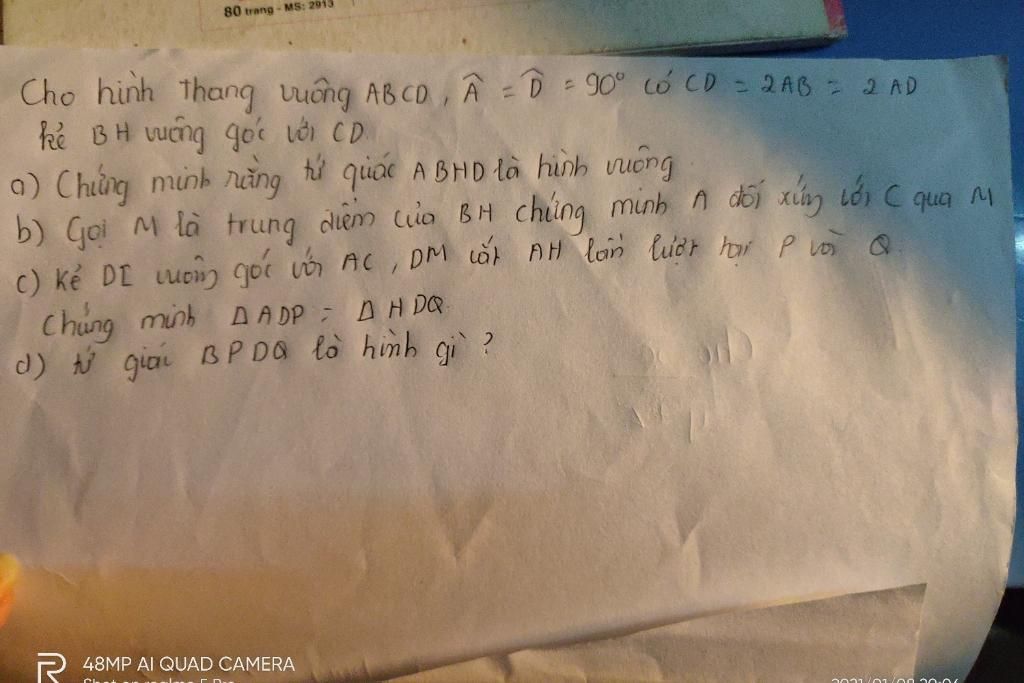 80 trang - MS: 2913
Cho hình thang vuông ABCD, Â = D̂ = 90° có CD = 2AB = 2AD
kẻ BH vuông góc với CD
a) Chứng minh rằng tứ quiác ABHD là hình vuông
b) Gọi M là trung điểm của BH chứng minh A đối xứng với C qua M
c) kẻ DI vuông góc với AC, DM cắt AH lần lượt tại P và Q.
Chứng minh ΔADP = ΔHDQ.
d) tứ giác BPDQ là hình gì?
48MP AI QUAD CAMERA
Shot on realme 5 Pro
2021/01/08 20:06